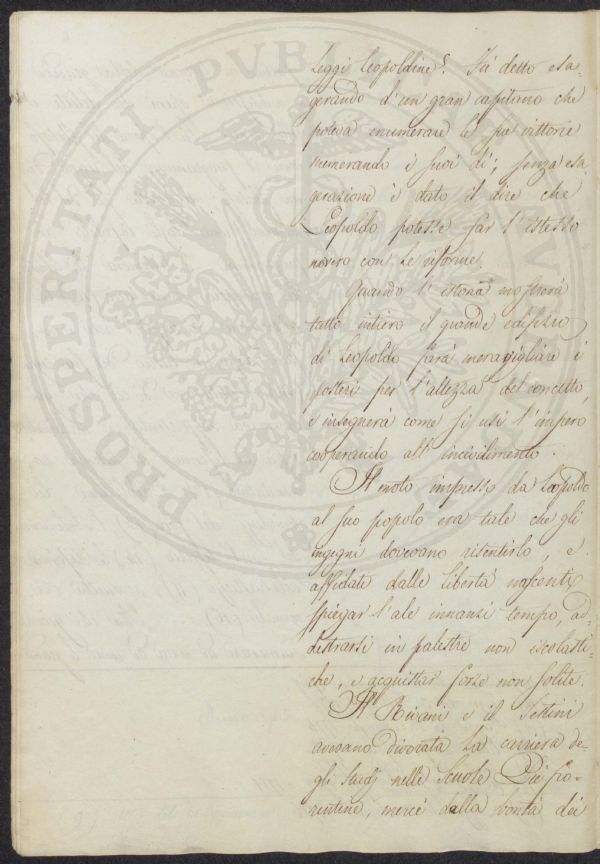 PROSPERITATI PUBL
leggi leopoldine? Fù detto esa-
gerando d'un gran capitano che
poteva enumerare le sue vittorie
numerando i suoi dì; senza esa-
gerazione è dato il dire che
Leopoldo potesse far l'istesso
novero con le riforme.
Quando l'istoria mostrerà
tutto intiero il grande edifizio
di Leopoldo farà meravigliare i
posteri per l'altezza del concetto,
e insegnerà come si usi l'impero
cooperando all'incivilimento.
Il moto impresso da Leopoldo
al suo popolo era tale che gli
ingegni dovevano risentirlo, e
affidate dalle libertà nascenti
spiegar l'ale innanzi tempo, ad-
destrarsi in palestre non iscolasti-
che, e acquistar forze non solite.
Il Rivani e il Sestini
avevano divorata la carriera de-
gli studj nelle Scuole Pie fio-
rentine, mercè della bontà dei